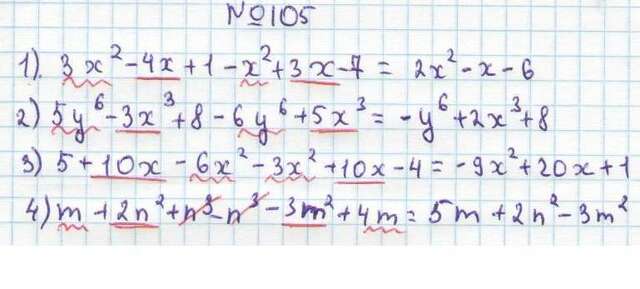 №105
1). 3x² - 4x + 1 - x² + 3x - 7 = 2x² - x - 6
2) 5y⁶ - 3x³ + 8 - 6y⁶ + 5x³ = -y⁶ + 2x³ + 8
3) 5 + 10x - 6x² - 3x² + 10x - 4 = -9x² + 20x + 1
4) m + 2n² + n³ - n³ - 3m² + 4m = 5m + 2n² - 3m²